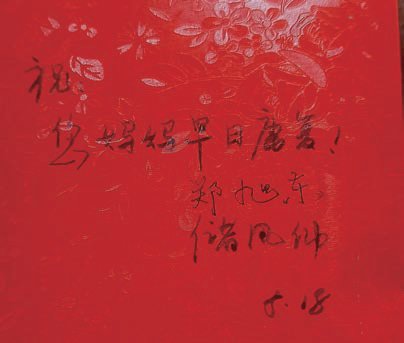 祝:
您妈妈早日康复!
郑旭东
储凤仙
5.18